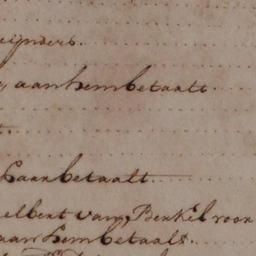 eijnders.
, aan hem betaalt
t.
haar betaalt
elbert van Benkel voor
aan hem betaalt.